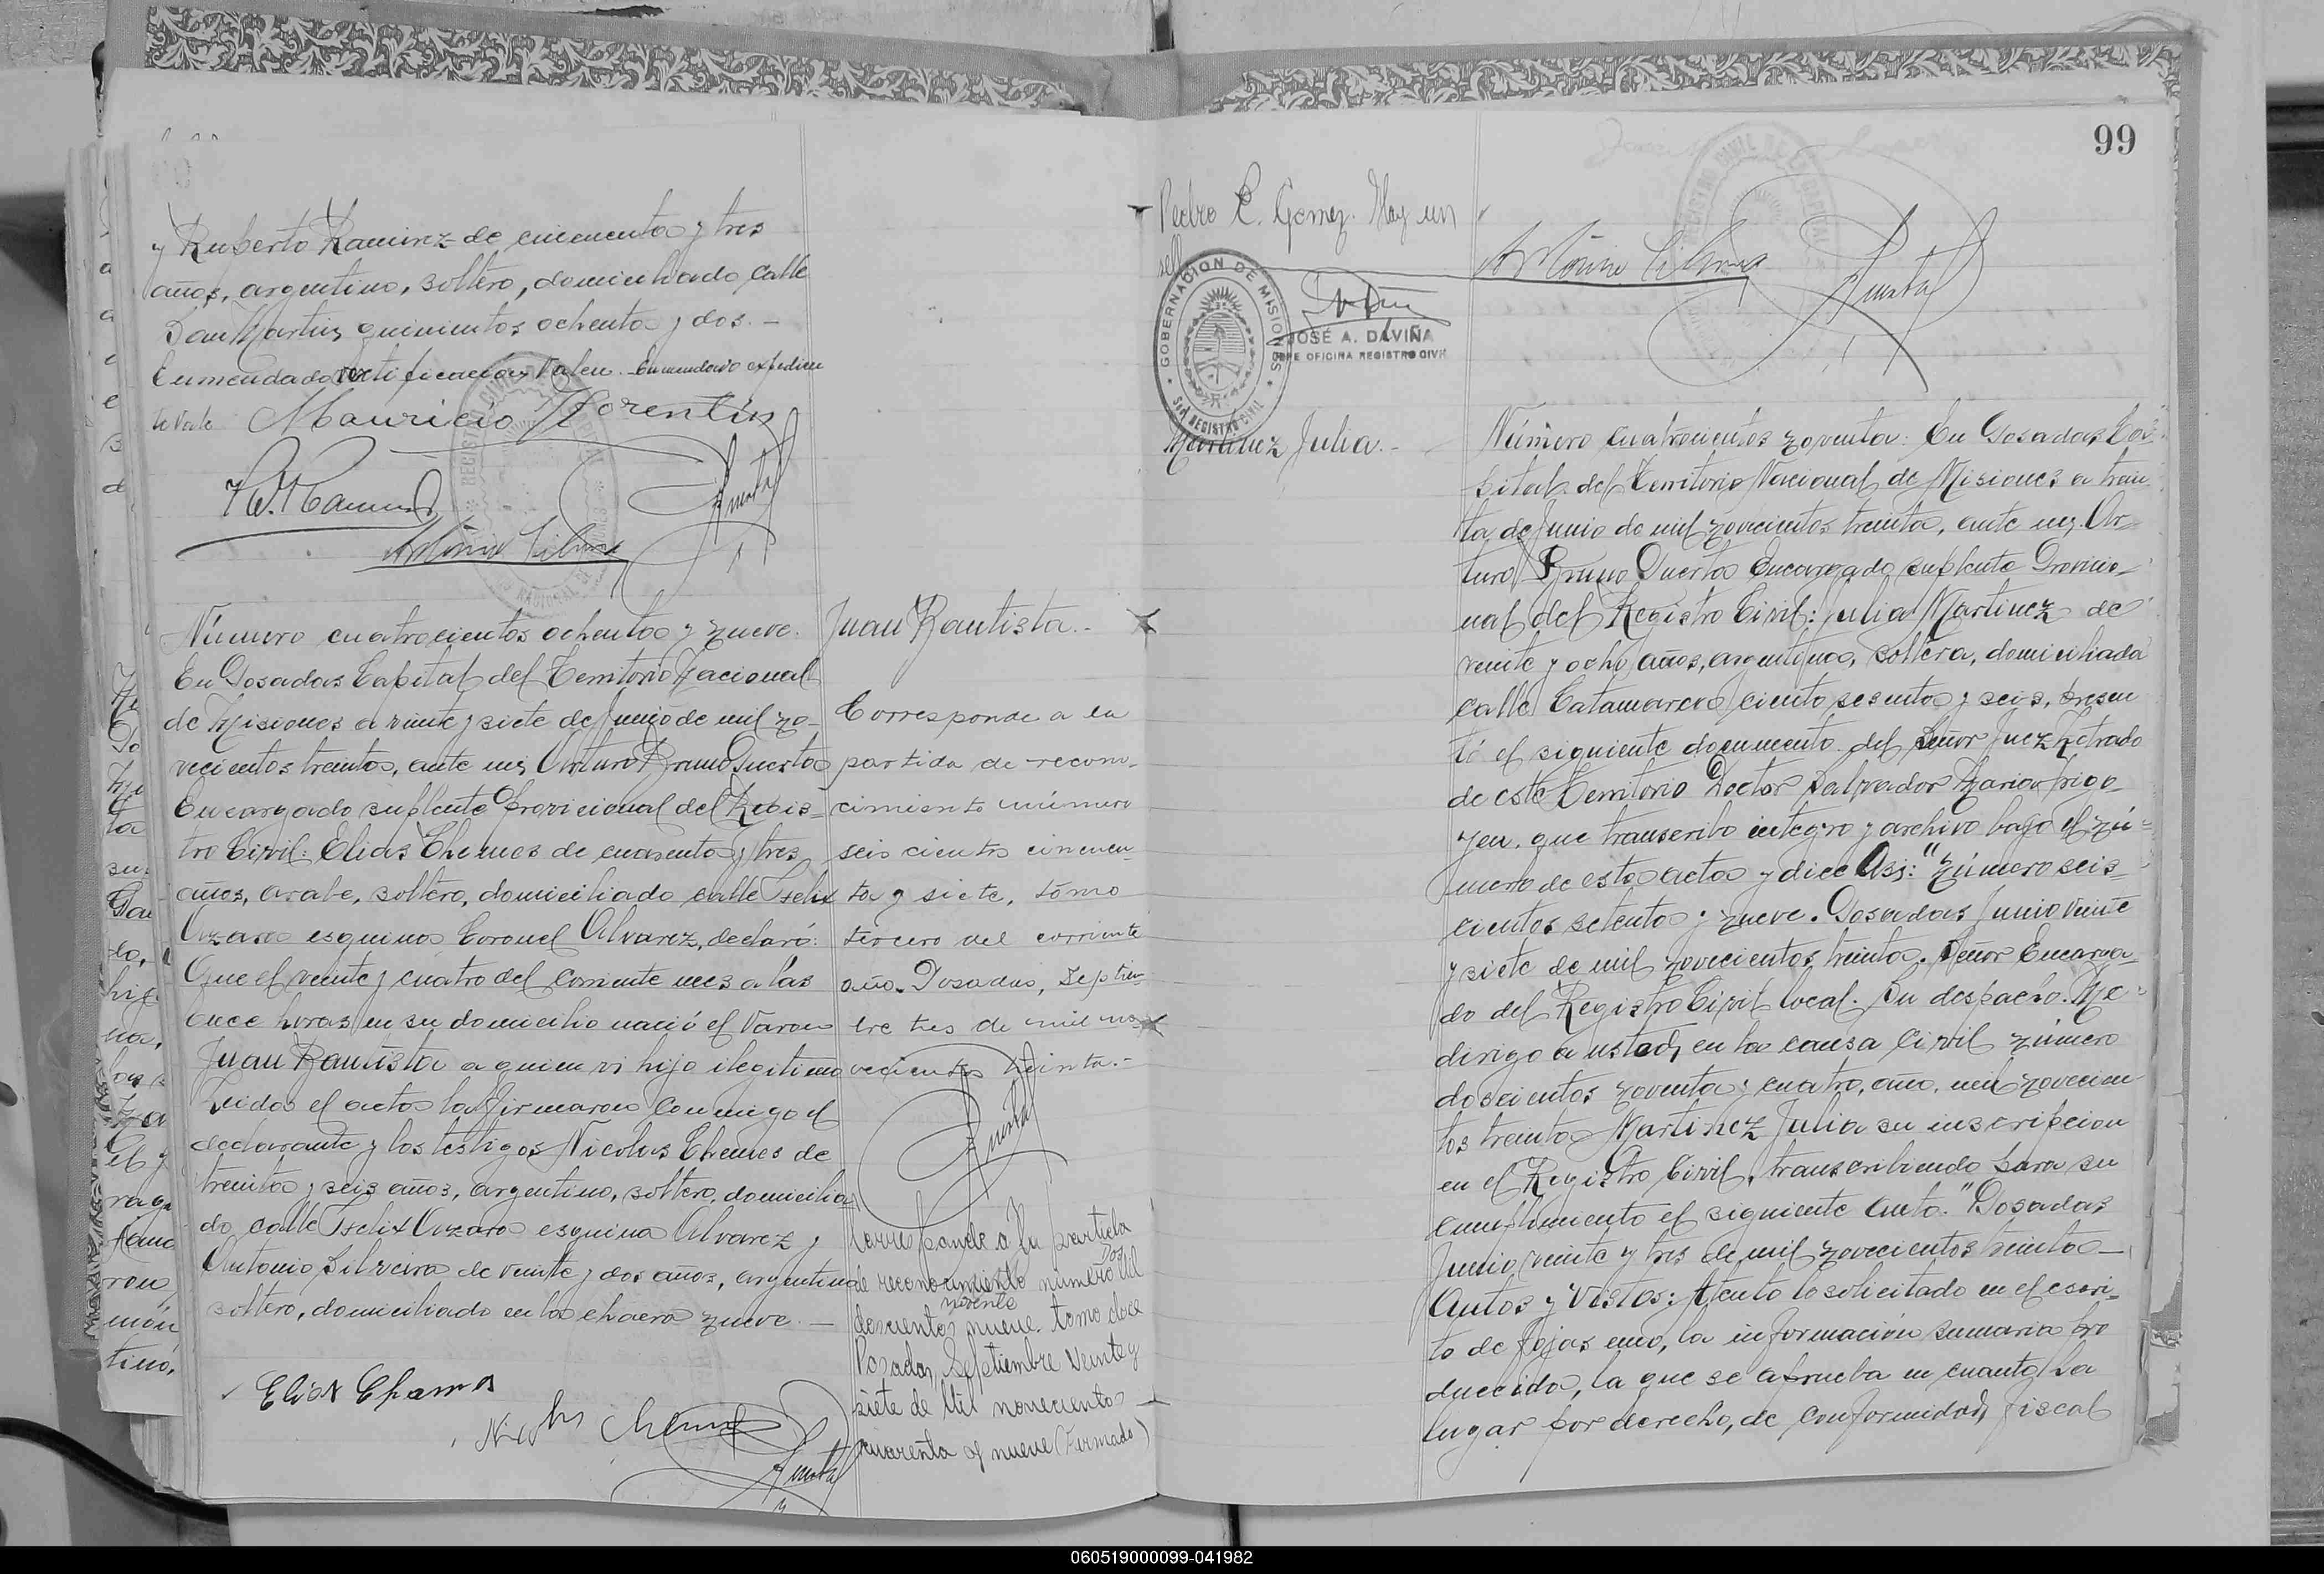 y Ruperto Ramirez de cincuenta y tres
años, argentino, soltero, domiciliado calle
San Martin quinientos ochenta y dos.—
Enmendado rectificacion Valen. Enmendado expedien
te Vale
Mauricio Florentin
Antonio Silvera
Número cuatrocientos ochenta y nueve.
En Posadas Capital del Territorio Nacional
de Misiones a veinte y siete de Junio de mil no-
vecientos treinta, ante mi, Arturo Bruno Puerta
Encargado suplente Provicional del Regis-
tro Civil: Elias Chemes de cuarenta y tres
años, arabe, soltero, domiciliado calle Felix
Azara esquina Coronel Alvarez, declaró:
Que el veinte y cuatro del corriente mes a las
once horas en su domicilio nació el varon
Juan Bautista a quien vi hijo ilegitimo
Leida el acta la firmaron conmigo el
declarante y los testigos Nicolas Chemes de
treinta y seis años, argentino, soltero, domicilia
do calle Felix Azara esquina Alvarez y
Antonio Silveira de veinte y dos años, argentino
soltero, domiciliado en la chacra nueve.—
Elias Chames
Nicolas Chemes
Juan Bautista.-
Corresponde a la
partida de recono-
cimiento número
seis cientos cincuen-
ta y siete, tomo
tercero del corriente
año. Posadas, Septiem-
bre tres de mil no-
vecientos treinta.-
Corresponde a la partida
de reconocimiento numero dos mil
doscientos noventa nueve. tomo doce
Posadas, Septiembre Veinte y
siete de Mil novecientos
cuarenta y nueve (Firmado)
99
Pedro E. Gomez. Hay un
sello
GOBERNACION DE MISIONES
REGISTRO CIVIL
JOSÉ A. DAVIÑA
JEFE OFICINA REGISTRO CIVIL
Antonio Silvera
Martinez Julia.-
Número cuatrocientos noventa: En Posadas Ca-
pital del Territorio Nacional de Misiones a trein
ta de Junio de mil novecientos treinta, ante mi, Ar-
turo Bruno Puerta Encargado suplente Provicio-
nal del Registro Civil: Julia Martinez de
veinte y ocho años, argentina, soltera, domiciliada
calle Catamarca ciento sesenta y seis, presen
tó el siguiente documento del Señor Juez Letrado
de este Territorio Doctor Salvador Maria Irigo-
yen, que transcribo integro y archivo bajo el nú-
mero de esta acta y dice Asi: "Número seis-
cientos setenta y nueve. Posadas Junio veinte
y siete de mil novecientos treinta. Señor Encarga-
do del Registro Civil local. Su despacho. Me
dirigo a usted, en la causa Civil número
doscientos noventa y cuatro, año, mil novecien
tos treinta Martinez Julia su inscripcion
en el Registro Civil, transcribiendo para su
cumplimiento el siguiente Auto. "Posadas
Junio veinte y tres de mil novecientos treinta—
Autos y Vistos: Atento lo solicitado en el escri-
to de fojas uno, la información sumaria pro
ducida, la que se aprueba en cuanto ha
lugar por derecho, de conformidad, fiscal
060519000099-041982